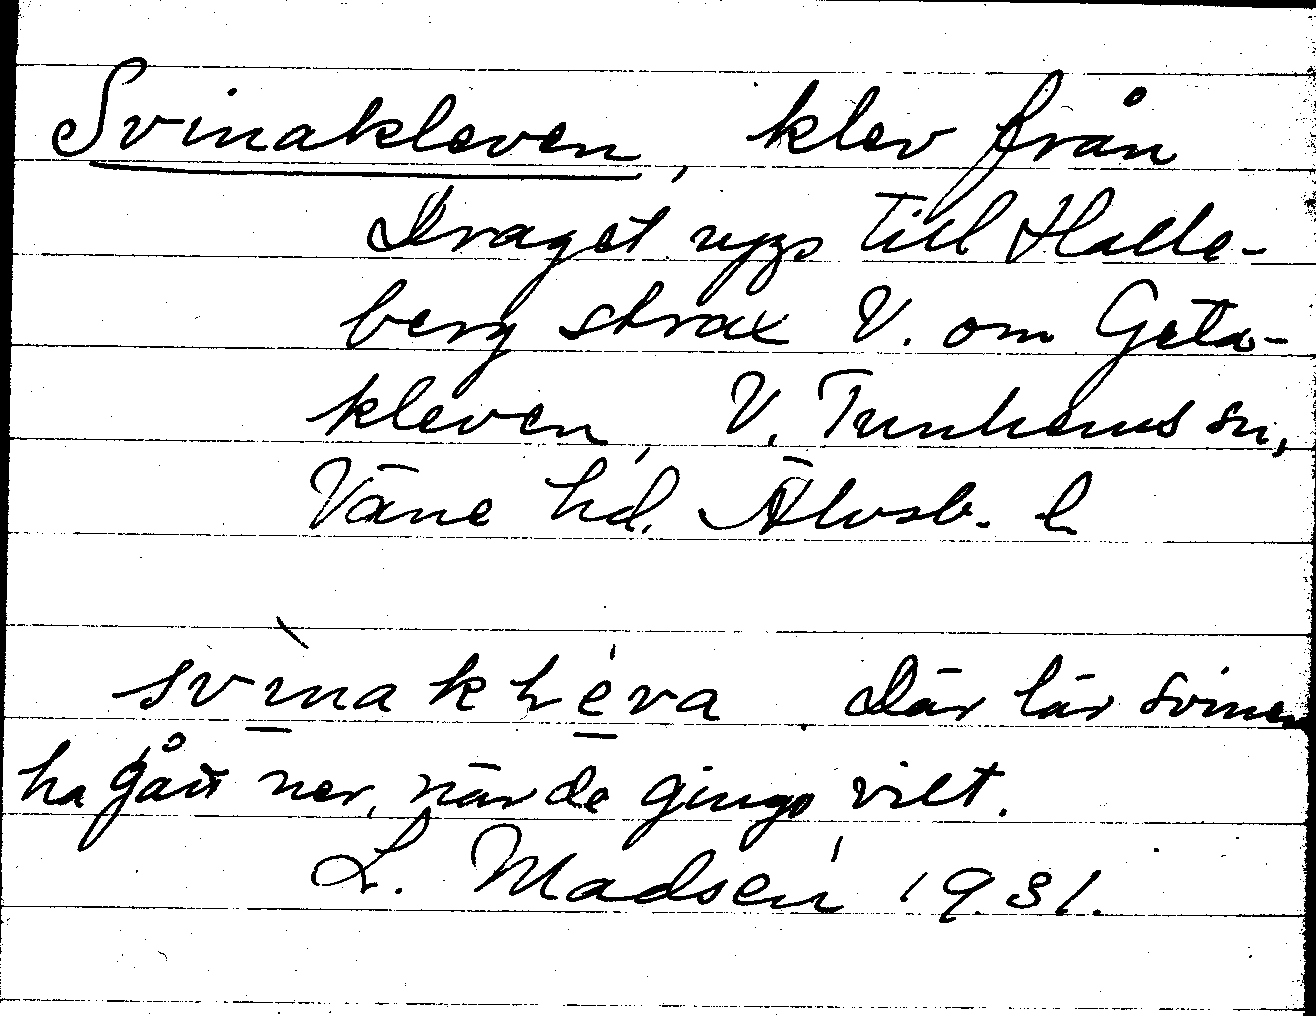 Svinakleven, klev från
Draget upp till Halle-
berg strax V. om Geta-
kleven, V. Tunhems sn,
Väne hd. Älvsb. l
svìnakléva. Där lär svinen
ha gått ner, när de gingo vilt.
L. Madsén 1931.